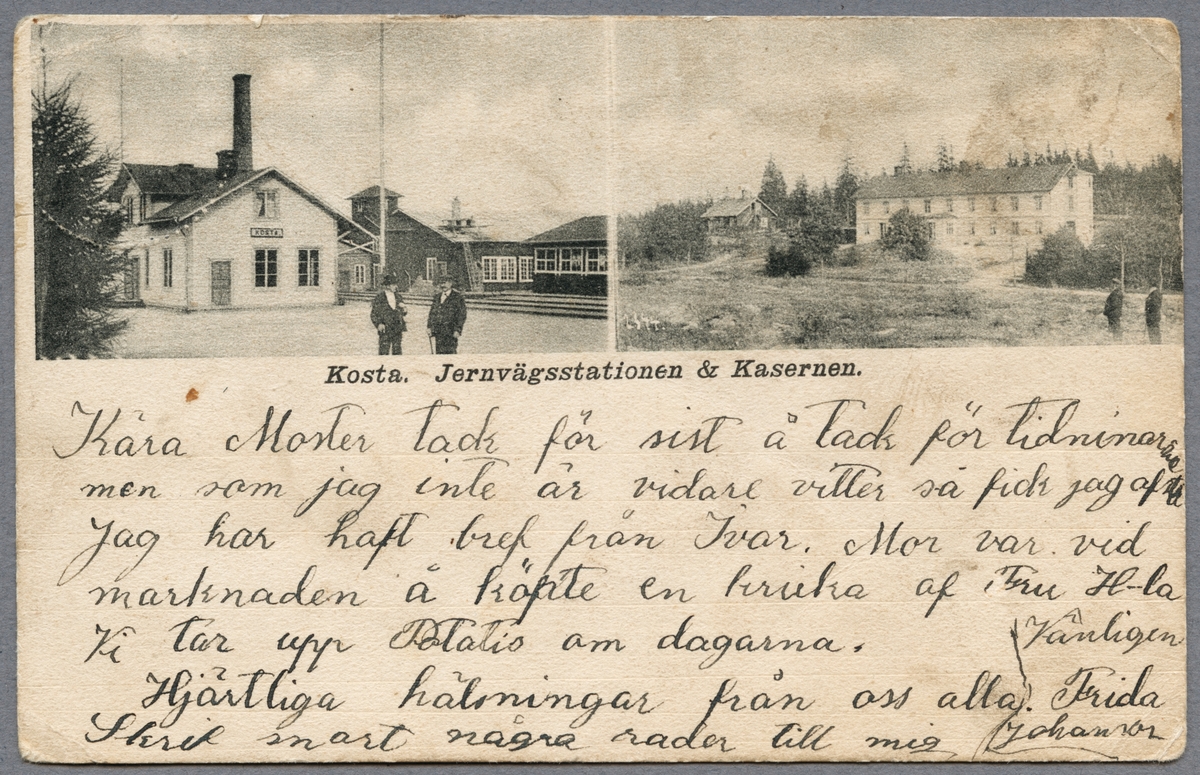 KOSTA
Kosta. Jernvägsstationen & Kasernen.
Kära Moster tack för sist å tack för tidninarna
men som jag inte är vidare vitter så fick jag af
Jag har haft bref från Ivar. Mor var vid
marknaden å köpte en kruka af Fru H-la
Vi tar upp Potatis om dagarna.
Vänligen
Hjärtliga hälsningar från oss alla. Frida
Skrif snart några rader till mig Johanson